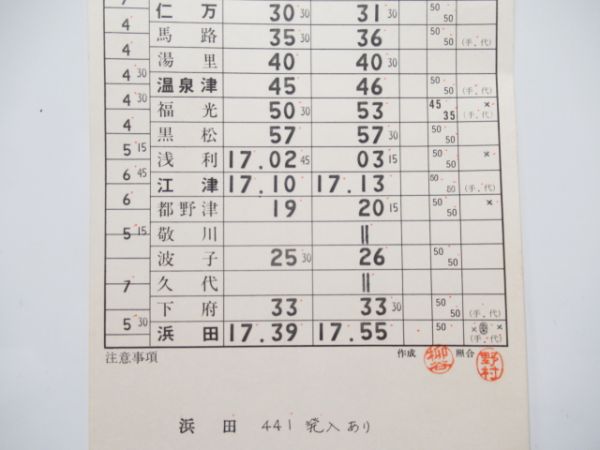 仁万 30 30 31 30 50 50
4 馬路 35 30 36 50 50 (手,代)
4 湯里 40 40 30 50 50
4 30 温泉津 45 46 50 50 (手,代)
4 30 福光 50 30 53 45 35 × (手,代)
4 黒松 57 57 30 50 50
5 15 浅利 17.02 45 03 15 50 50 ×
6 45 江津 17.10 17.13 50 50 (手,代)
6 都野津 19 20 15 50 50 ×
5 15 敬川 ||
波子 25 30 26 50 50
7 久代 ||
下府 33 33 30 50 50 (手,代)
5 30 浜田 17.39 17.55 50 × × (手,代)
注意事項 作成 柳谷 照合 野村
浜田 441発入あり